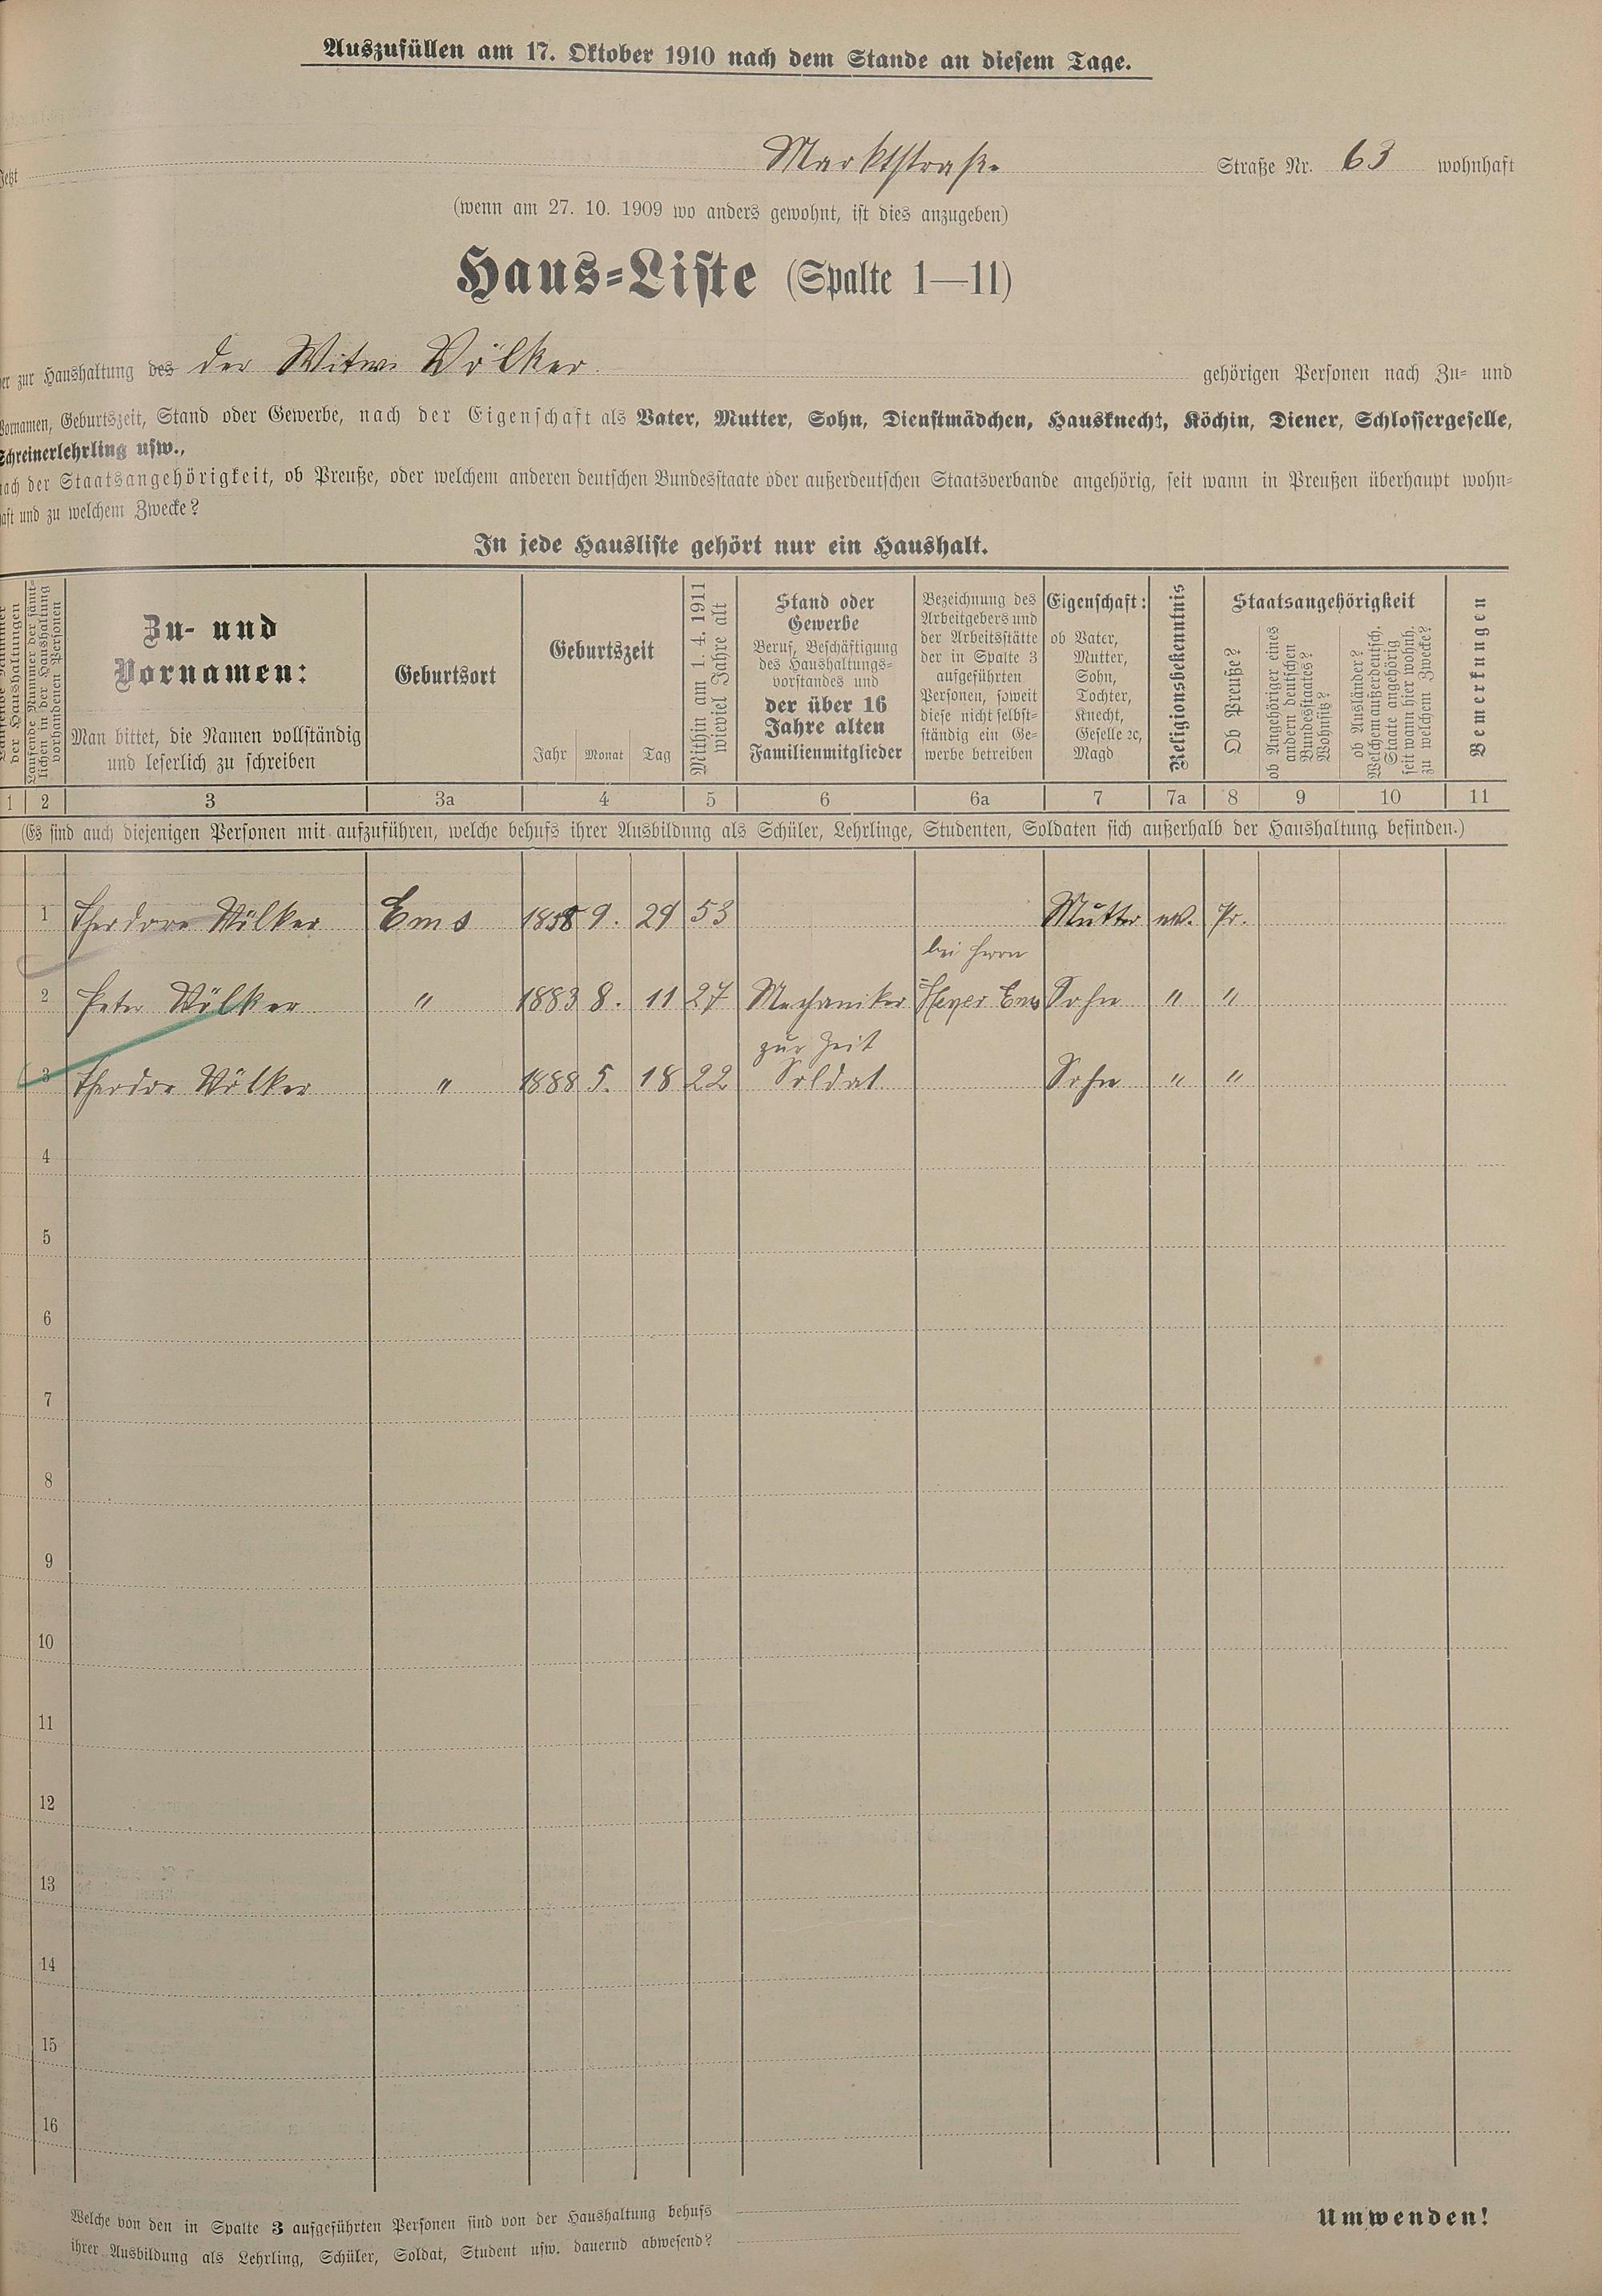 Auszufüllen am 17. Oktober 1910 nach dem Stande an diesem Tage.
Jetzt Marktstraße Straße Nr. 63 wohnhaft
(wenn am 27. 10. 1909 wo anders gewohnt, ist dies anzugeben)
Haus-Liste (Spalte 1—11)
er zur Haushaltung des der Witwe Völker gehörigen Personen nach Zu- und
Vornamen, Geburtszeit, Stand oder Gewerbe, nach der Eigenschaft als Vater, Mutter, Sohn, Dienstmädchen, Hausknecht, Köchin, Diener, Schlossergeselle,
Schreinerlehrling usw.,
nach der Staatsangehörigkeit, ob Preuße, oder welchem anderen deutschen Bundesstaate oder außerdeutschen Staatsverbande angehörig, seit wann in Preußen überhaupt wohn-
haft und zu welchem Zwecke?
In jede Hausliste gehört nur ein Haushalt.
der Haushaltungen
Laufende Nummer der sämt-
lichen in der Haushaltung
vorhandenen Personen
Zu- und
Vornamen:
Man bittet, die Namen vollständig
und leserlich zu schreiben
Geburtsort
Geburtszeit
Jahr Monat Tag
Mithin am 1. 4. 1911
wieviel Jahre alt
Stand oder
Gewerbe
Beruf, Beschäftigung
des Haushaltungs-
vorstandes und
der über 16
Jahre alten
Familienmitglieder
Bezeichnung des
Arbeitgebers und
der Arbeitsstätte
der in Spalte 3
aufgeführten
Personen, soweit
diese nicht selbst-
ständig ein Ge-
werbe betreiben
Eigenschaft:
ob Vater,
Mutter,
Sohn,
Tochter,
Knecht,
Geselle ec,
Magd
Religionsbekenntnis
Staatsangehörigkeit
Ob Preuße?
ob Angehöriger eines
andern deutschen
Bundesstaates?
Wohnsitz?
ob Ausländer?
Welchem außerdeutsch.
Staate angehörig
seit wann hier wohnh.
zu welchem Zwecke?
Bemerkungen
1 2 3 3a 4 5 6 6a 7 7a 8 9 10 11
(Es sind auch diejenigen Personen mit aufzuführen, welche behufs ihrer Ausbildung als Schüler, Lehrlinge, Studenten, Soldaten sich außerhalb der Haushaltung befinden.)
1 Theodore Völker Ems 1858 9. 29 53 Mutter ev. Pr.
bei Herrn
2 Peter Völker " 1883 8. 11 27 Mechaniker Ems Sohn " "
zur Zeit
3 Theodor Völker " 1888 5. 18 22 Soldat Sohn " "
4
5
6
7
8
9
10
11
12
13
14
15
16
Welche von den in Spalte 3 aufgeführten Personen sind von der Haushaltung behufs
ihrer Ausbildung als Lehrling, Schüler, Soldat, Student usw. dauernd abwesend?
Umwenden!